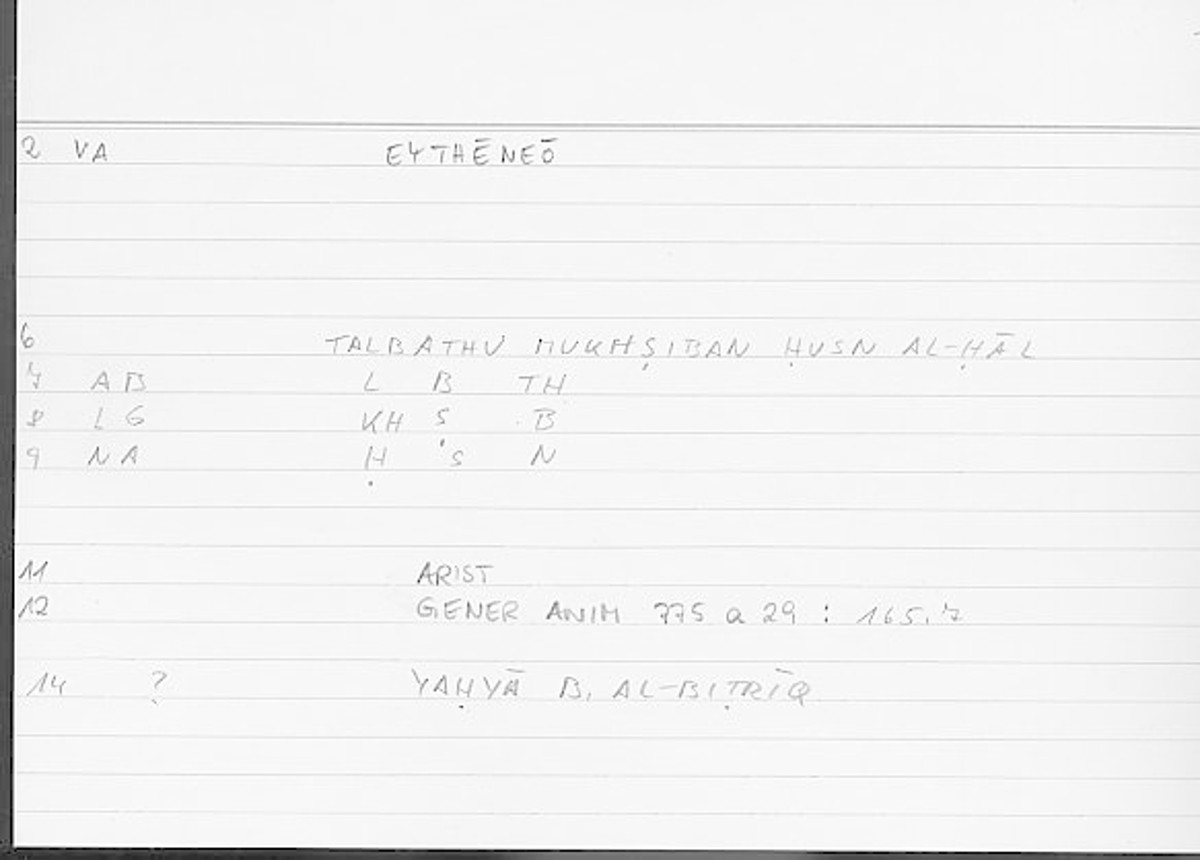 2 VA EYTHĒNEŌ
6 TALBATHU MUKHṢIBAN ḤUSN AL-ḤĀL
7 AB L B TH
8 LG KH Ṣ B
9 NA Ḥ S N
11 ARIST
12 GENER ANIM 775 a 29 : 165.7
14 ? YAḤYĀ B. AL-BIṬRĪQ